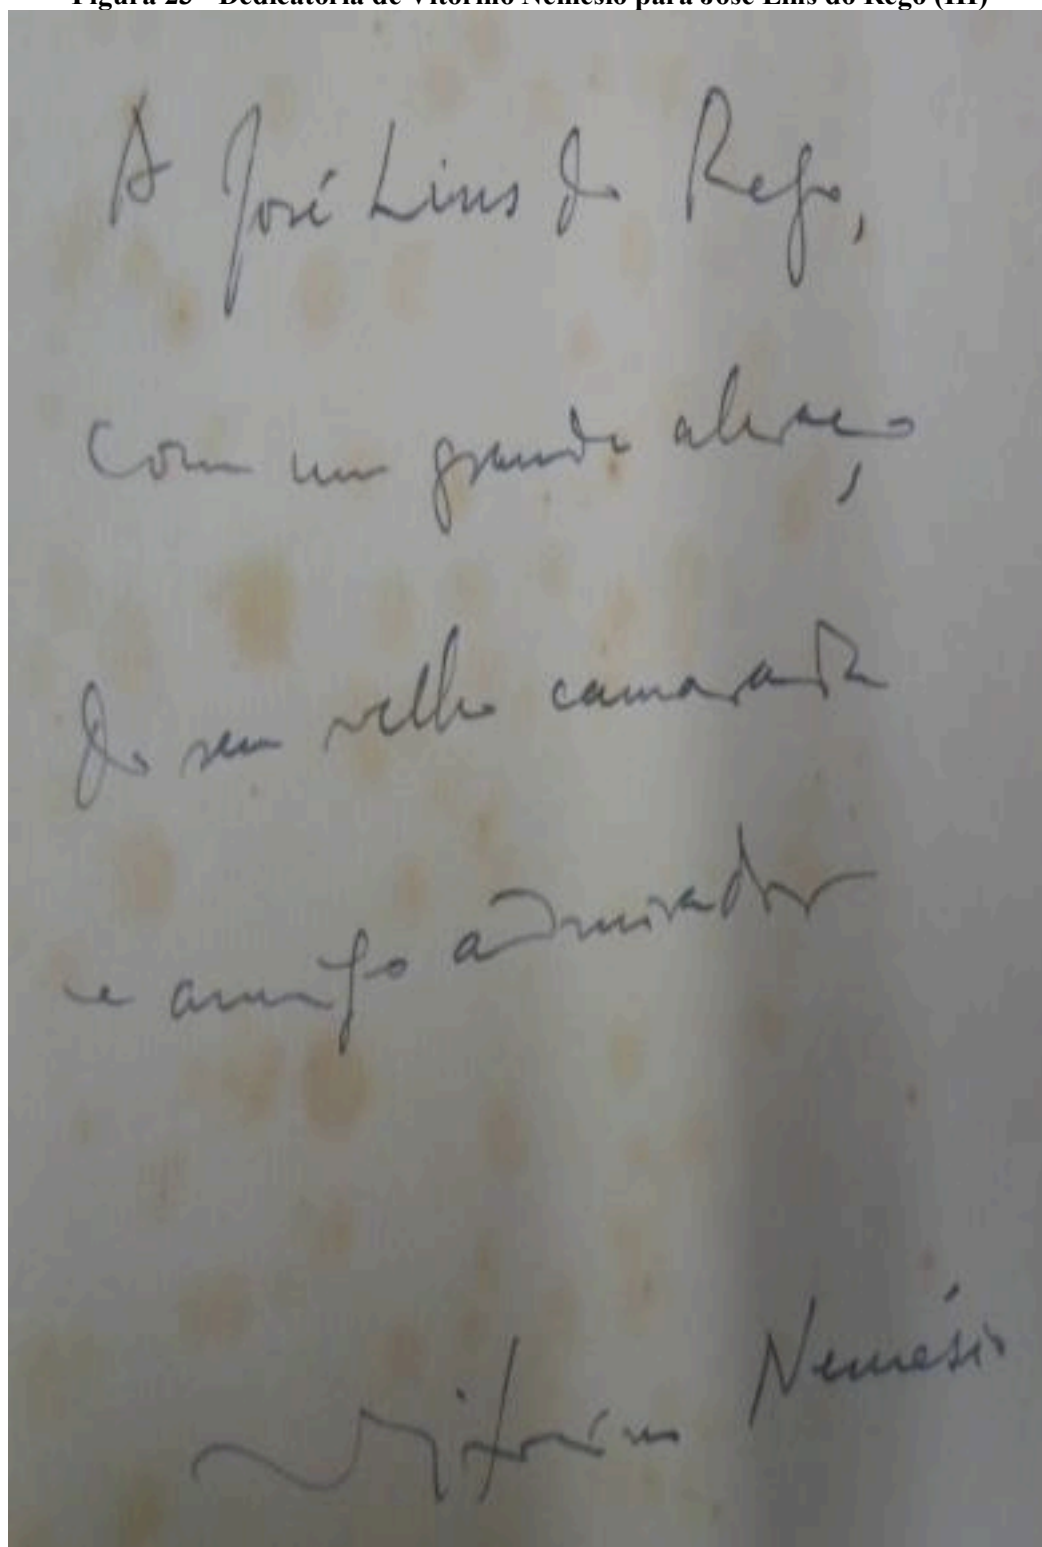 Dedicatória de Vitorino Nemésio para José Lins do Rego (III)
A José Lins do Rego,
com um grande abraço
do seu velho camarada
e amigo admirador
Vitorino Nemésio